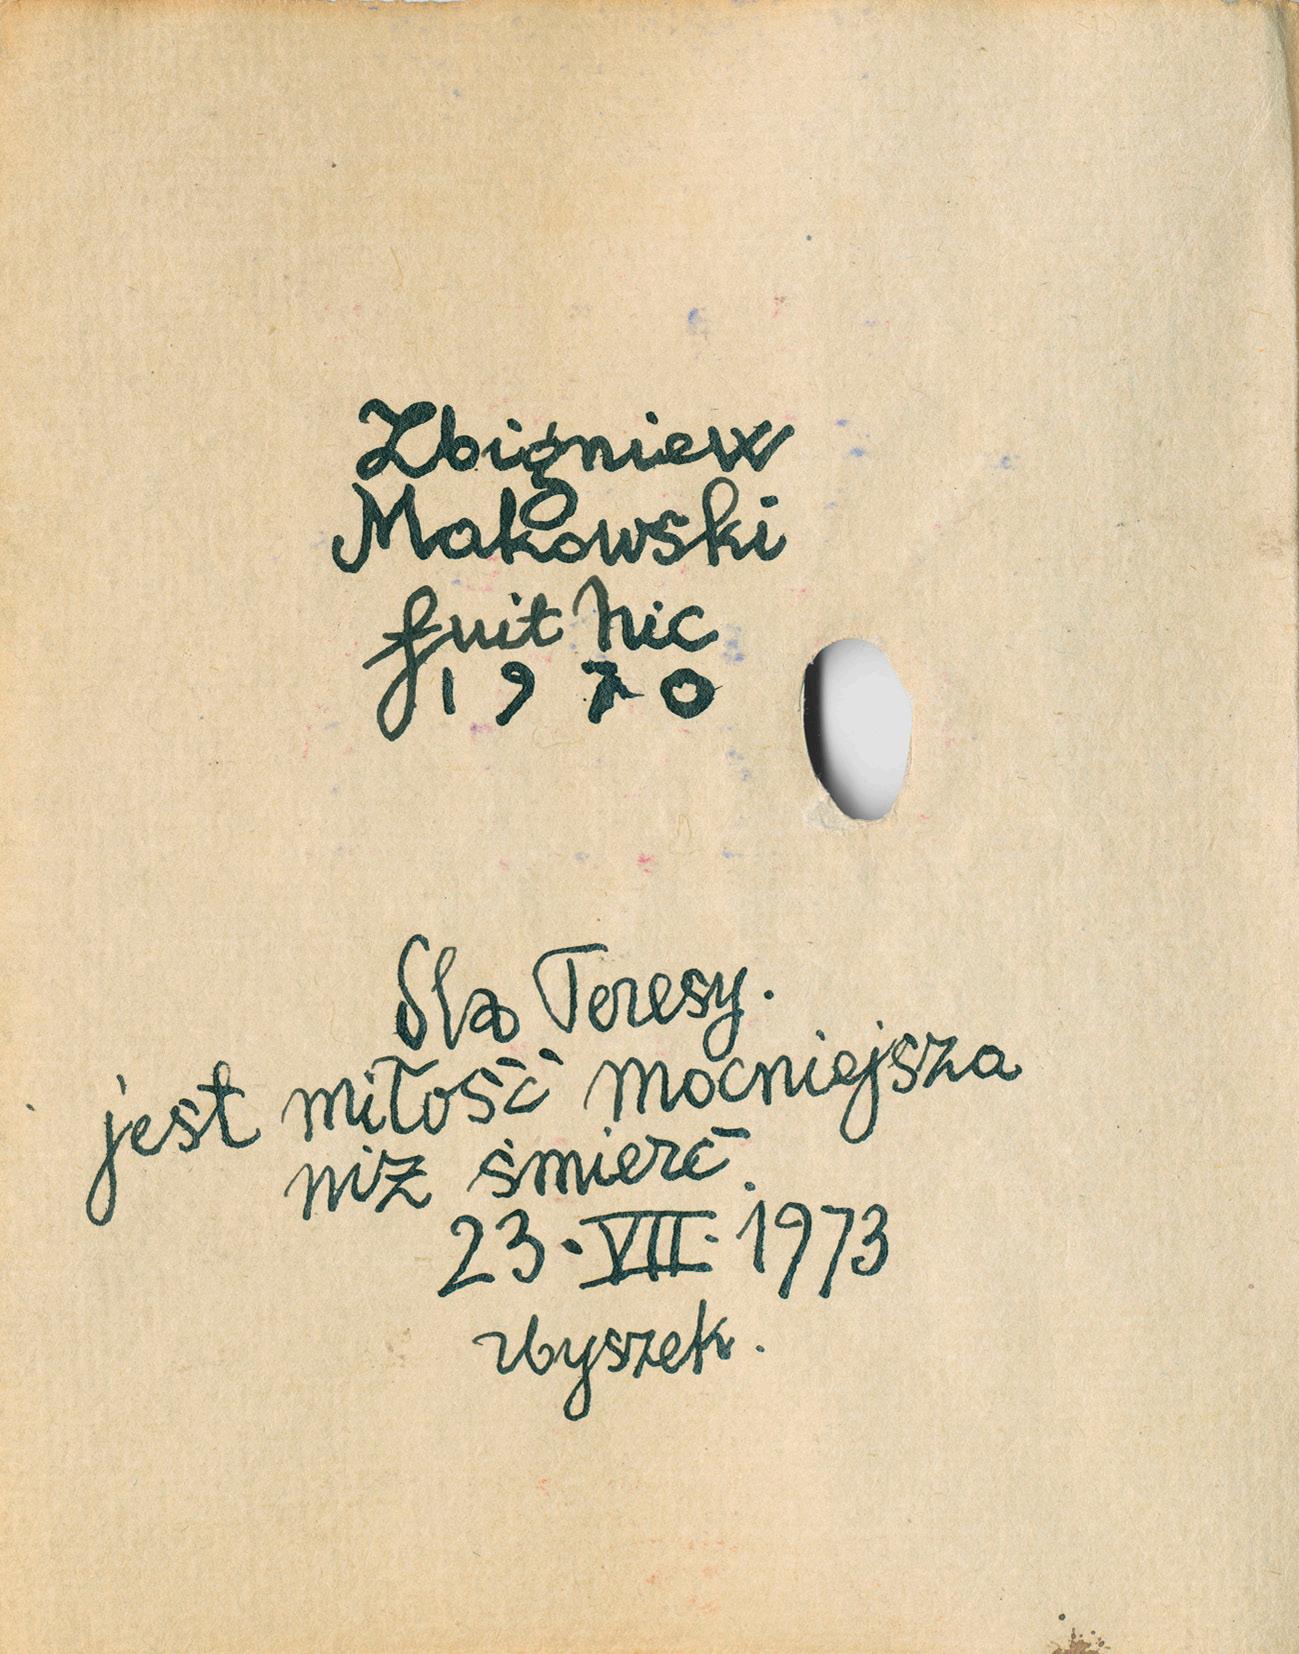 Zbigniew
Makowski
fuit hic
1970
dla Teresy.
jest miłość mocniejsza
niż śmierć.
23·VII·1973
zbyszek.